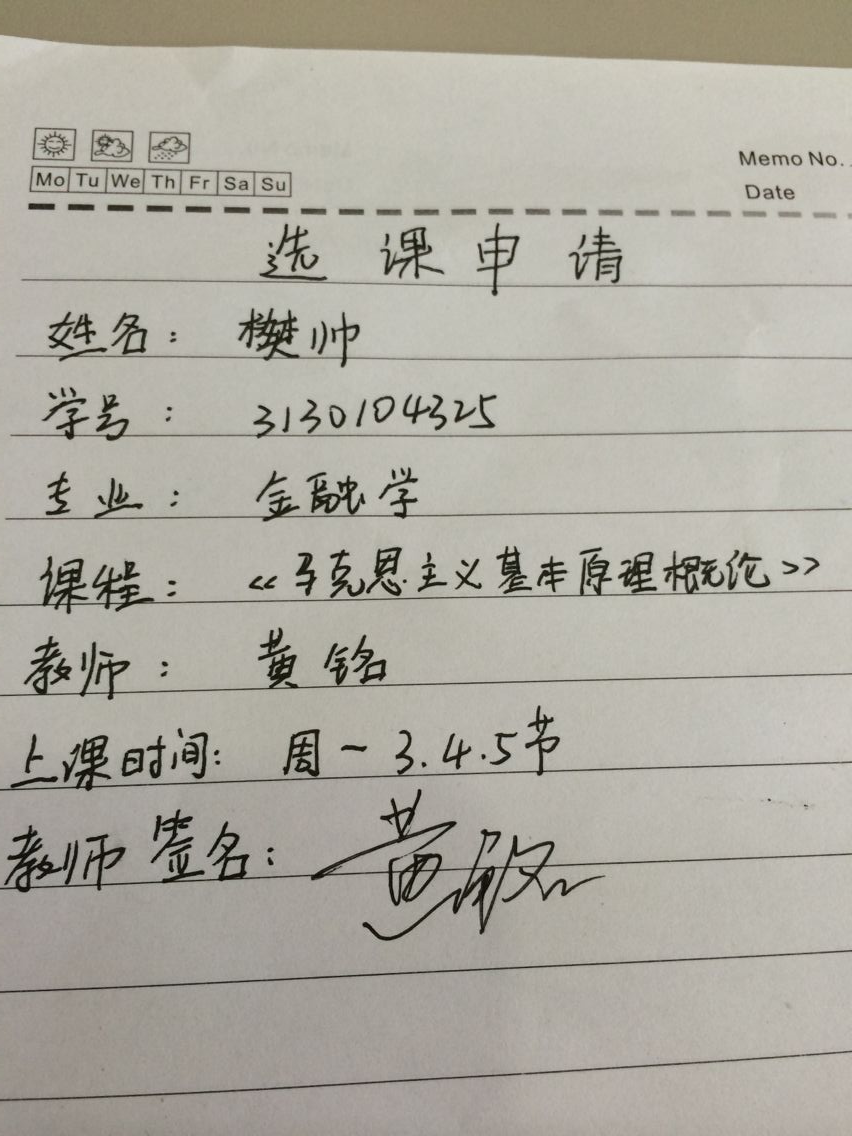 Mo Tu We Th Fr Sa Su
Memo No.
Date
选课申请
姓名：樊帅
学号：3130104325
专业：金融学
课程：《马克思主义基本原理概论》
教师：黄铭
上课时间：周一3.4.5节
教师签名：黄铭